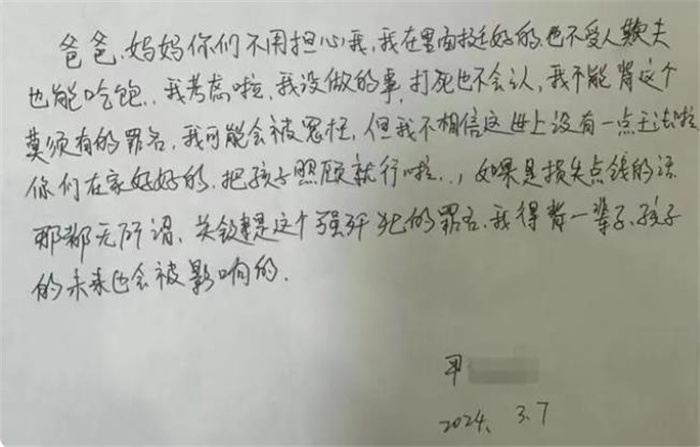 爸爸、妈妈你们不用担心我,我在里面挺好的.也不受人欺夫
也能吃饱..我考虑啦,我没做的事,打死也不会认,我不能背这个
莫须有的罪名,我可能会被冤枉,但我不相信这世上没有一点王法啦
你们在家好好的.把孩子照顾就行啦..,如果是损失点钱的话
那都无所谓、关键是这个强奸犯的罪名.我得背一辈子.孩子
的未来也会被影响的.
2024. 3.7